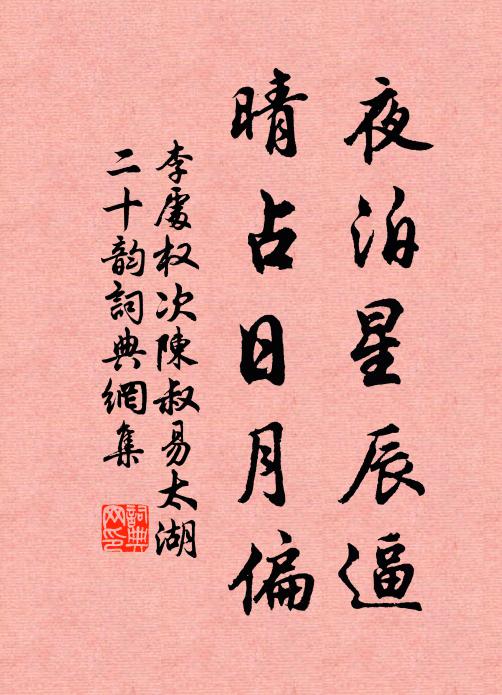 夜泊星辰逼
晴占日月偏
李處权次陳叔易太湖
二十韵詞典網集
詞典网印